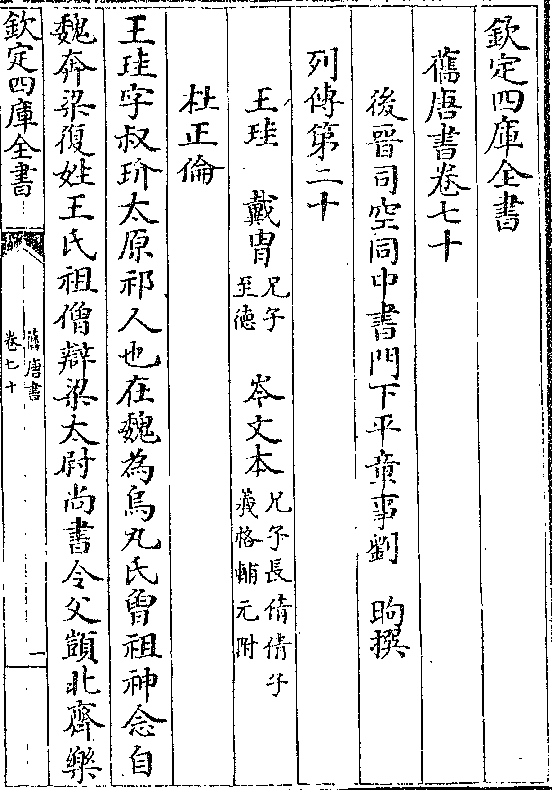 欽定四庫全書
舊唐書卷七十
後晉司空同中書門下平章事劉 昫撰
列傳第二十
王珪 戴冑兄子至德 岑文本兄子長倩倩子羲格輔元附
杜正倫
王珪字叔玠太原祁人也在魏為烏丸氏曾祖神念自
魏奔梁復姓王氏祖僧辯梁太尉尚書令父顗北齊樂
欽定四庫全書
舊唐書
卷七十
一